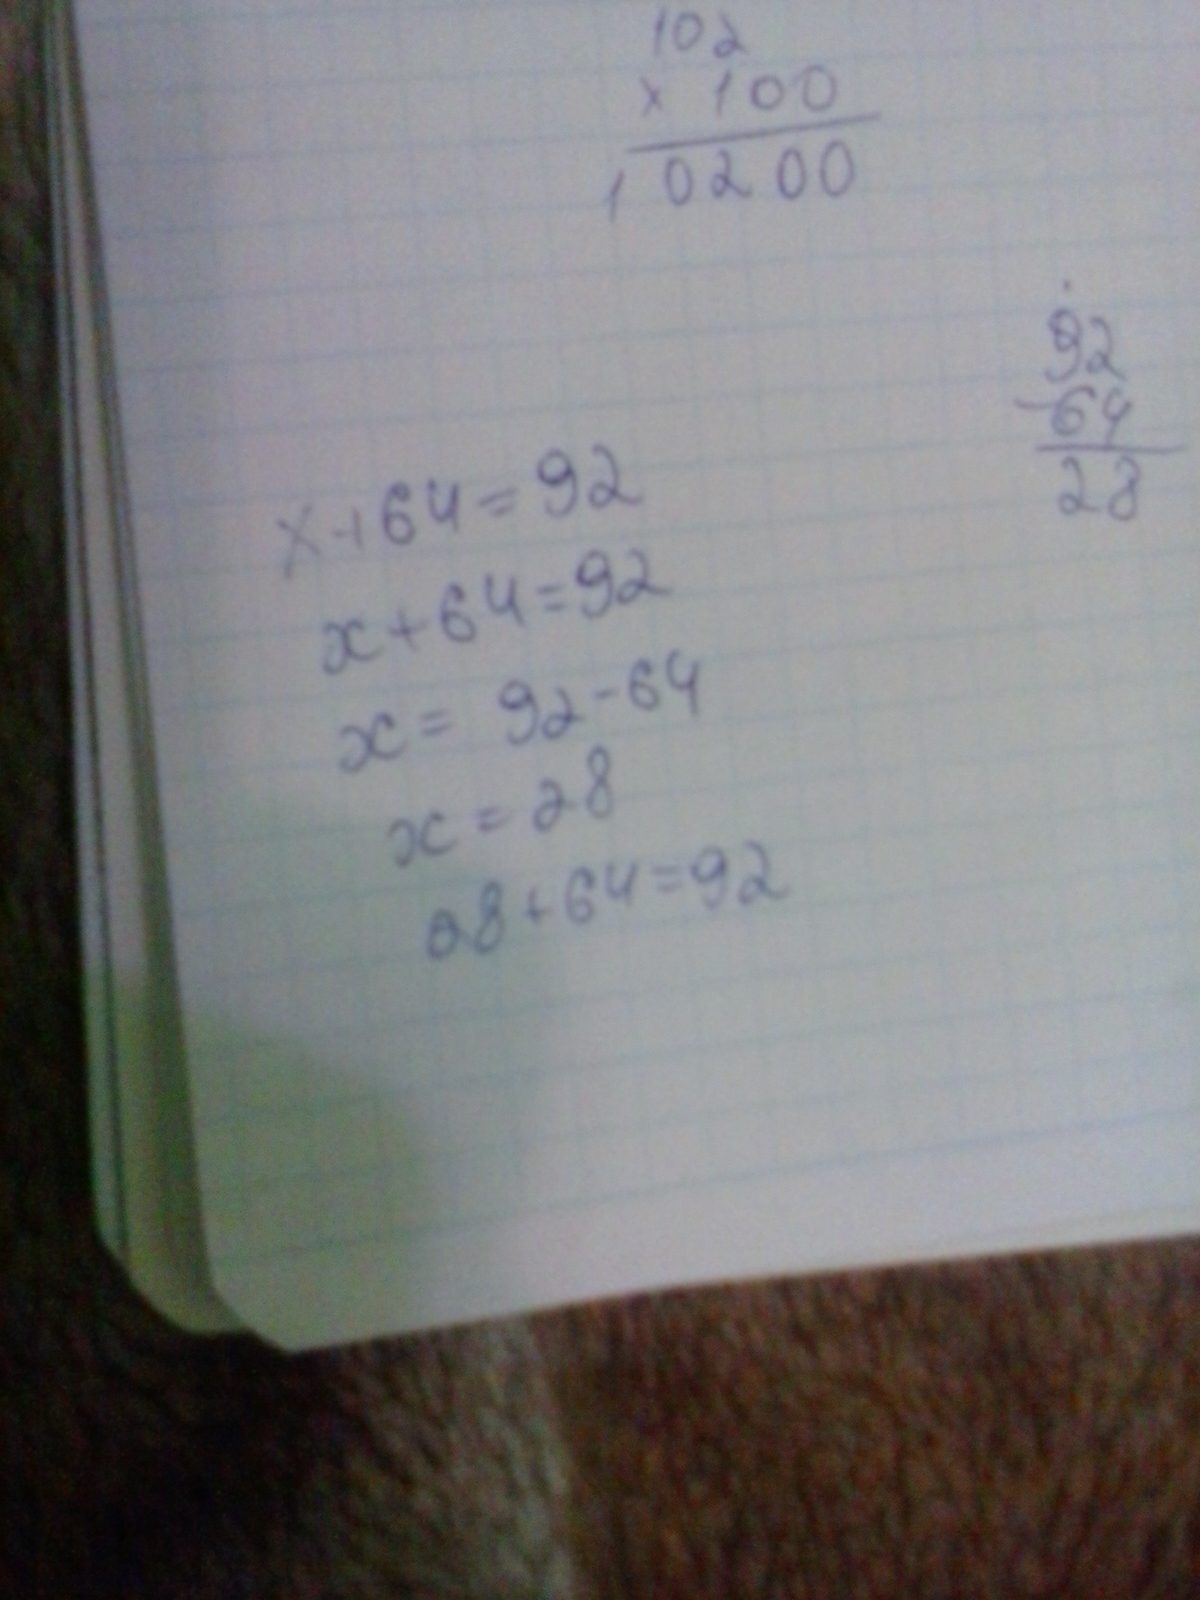 102
x 100
10200
92
-64
28
x+64=92
x+64=92
x= 92-64
x=28
28+64=92